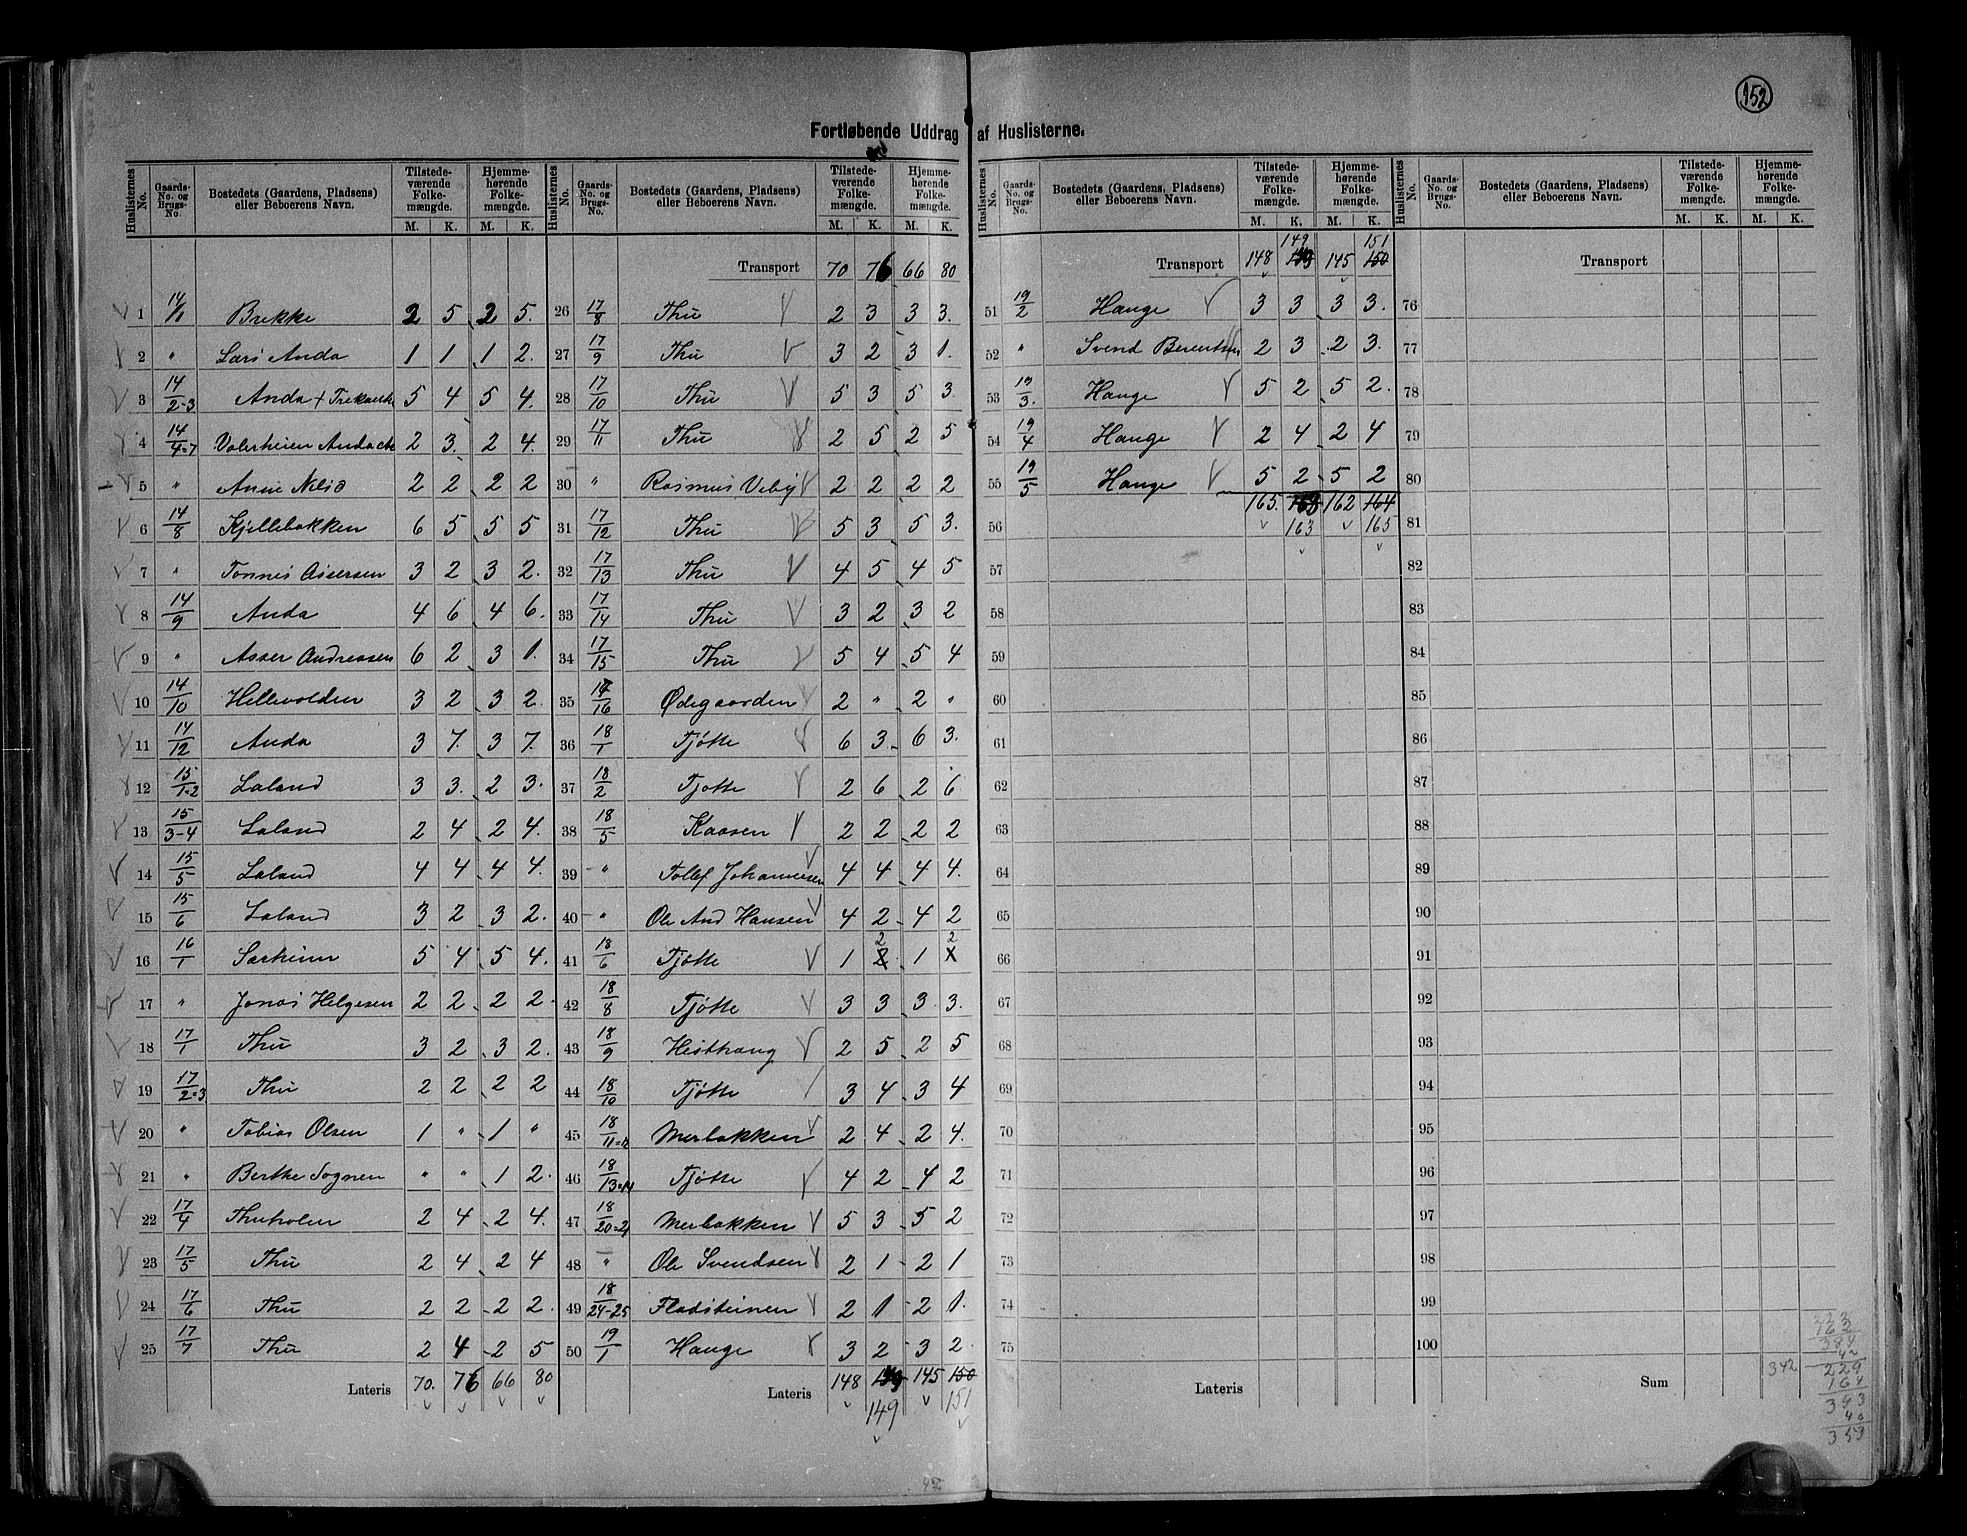 152
Fortløbende Uddrag af Huslisterne.
Huslisternes No. Gaards-No. og Brugs-No. Bostedets (Gaardens, Pladsens) eller Beboerens Navn. Tilstedeværende Folkemængde. M. K. Hjemmehørende Folkemængde. M. K.
1 14/1 Brekke 2 5 2 5.
2 " Lars Anda 1 1 1 2.
3 14/2-3 Anda + 5 4 5 4.
4 14/4=7 Anda 2 3. 2 4.
5 " Anne 2 2 2 2
6 14/8 Kjellebakken 6 5 5 5
7 " Tønnes Assersen 3 2 3 2.
8 14/9 Anda 4 6 4 6.
9 " Asser Andreassen 6 2 3 1.
10 14/10 Hellevolden 3 2 3 2.
11 14/12 Anda 3 7. 3 7.
12 15/1=2 Laland 3 3. 2 3.
13 15/3-4 Laland 2 4 2 4.
14 15/5 Laland 4 4 4 4.
15 15/6 Laland 3 2 3 2.
16 16/1 Sarheim 5 4 5 4.
17 " Jonas Helgesen 2 2 2 2.
18 17/1 Thu 3 2 3 2.
19 17/2=3 Thu 2 2 2 2
20 " Tobias Olsen 1 " 1 "
21 " Berthe Sognen " " 1 2.
22 17/4 Thuholen 2 4 2 4.
23 17/5 Thu 2 4 2 4
24 17/6 Thu 2 2 2 2.
25 17/7 Thu 2 4 2 5
Lateris 70. 76 66 80
Huslisternes No. Gaards-No. og Brugs-No. Bostedets (Gaardens, Pladsens) eller Beboerens Navn. Tilstedeværende Folkemængde. M. K. Hjemmehørende Folkemængde. M. K.
Transport 70 76 66 80
26 17/8 Thu 2 3 3 3.
27 17/9 Thu 3 2 3 1.
28 17/10 Thu 5 3 5 3.
29 17/11 Thu 2 5 2 5
30 " Rasmus Veby 2 2 2 2
31 17/12 Thu 5 3 5 3.
32 17/13 Thu 4 5 4 5
33 17/14 Thu 3 2 3 2
34 17/15 Thu 5 4 5 4
35 17/16 Ødegaarden 2 " 2 "
36 18/1 Tjøtte 6 3 6 3.
37 18/2 Tjøtte 2 6 2 6
38 18/5 Kaasen 2 2 2 2
39 " Tollef Johannesen 4 4 4 4.
40 " Ole And Hansen 4 2 4 2
41 18/6 Tjøtte 1 2 1 2
42 18/8 Tjøtte 3 3 3 3.
43 18/9 Hesthaug 2 5 2 5
44 18/10 Tjøtte 3 4 3 4
45 18/11=12 Merbakken 2 4 2 4.
46 18/13=14 Tjøtte 4 2 4 2
47 18/20=21 Merbakken 5 3 5 2
48 " Ole Svendsen 2 1 2 1
49 18/24-25 Fladsteinen 2 1 2 1.
50 19/1 Hauge 3 2 3 2.
Lateris 148 145 150
149 151
42
Huslisternes No. Gaards-No. og Brugs-No. Bostedets (Gaardens, Pladsens) eller Beboerens Navn. Tilstedeværende Folkemængde. M. K. Hjemmehørende Folkemængde. M. K.
149 151
Transport 148 145 150
51 19/2 Hauge 3 3 3 3.
52 " Svend Berentsen 2 3 2 3.
53 19/3. Hauge 5 2 5 2.
54 19/4 Hauge 2 4 2 4
55 19/5 Hauge 5 2 5 2
165. 162 164
56 163 165
57
58
59
60
61
62
63
64
65
66
67
68
69
70
71
72
73
74
75
Lateris
Huslisternes No. Gaards-No. og Brugs-No. Bostedets (Gaardens, Pladsens) eller Beboerens Navn. Tilstedeværende Folkemængde. M. K. Hjemmehørende Folkemængde. M. K.
Transport
76
77
78
79
80
81
82
83
84
85
86
87
88
89
90
91
92
93
94
95
96
97
98
99
100
Sum
342
384
42
229
164
393
40
359